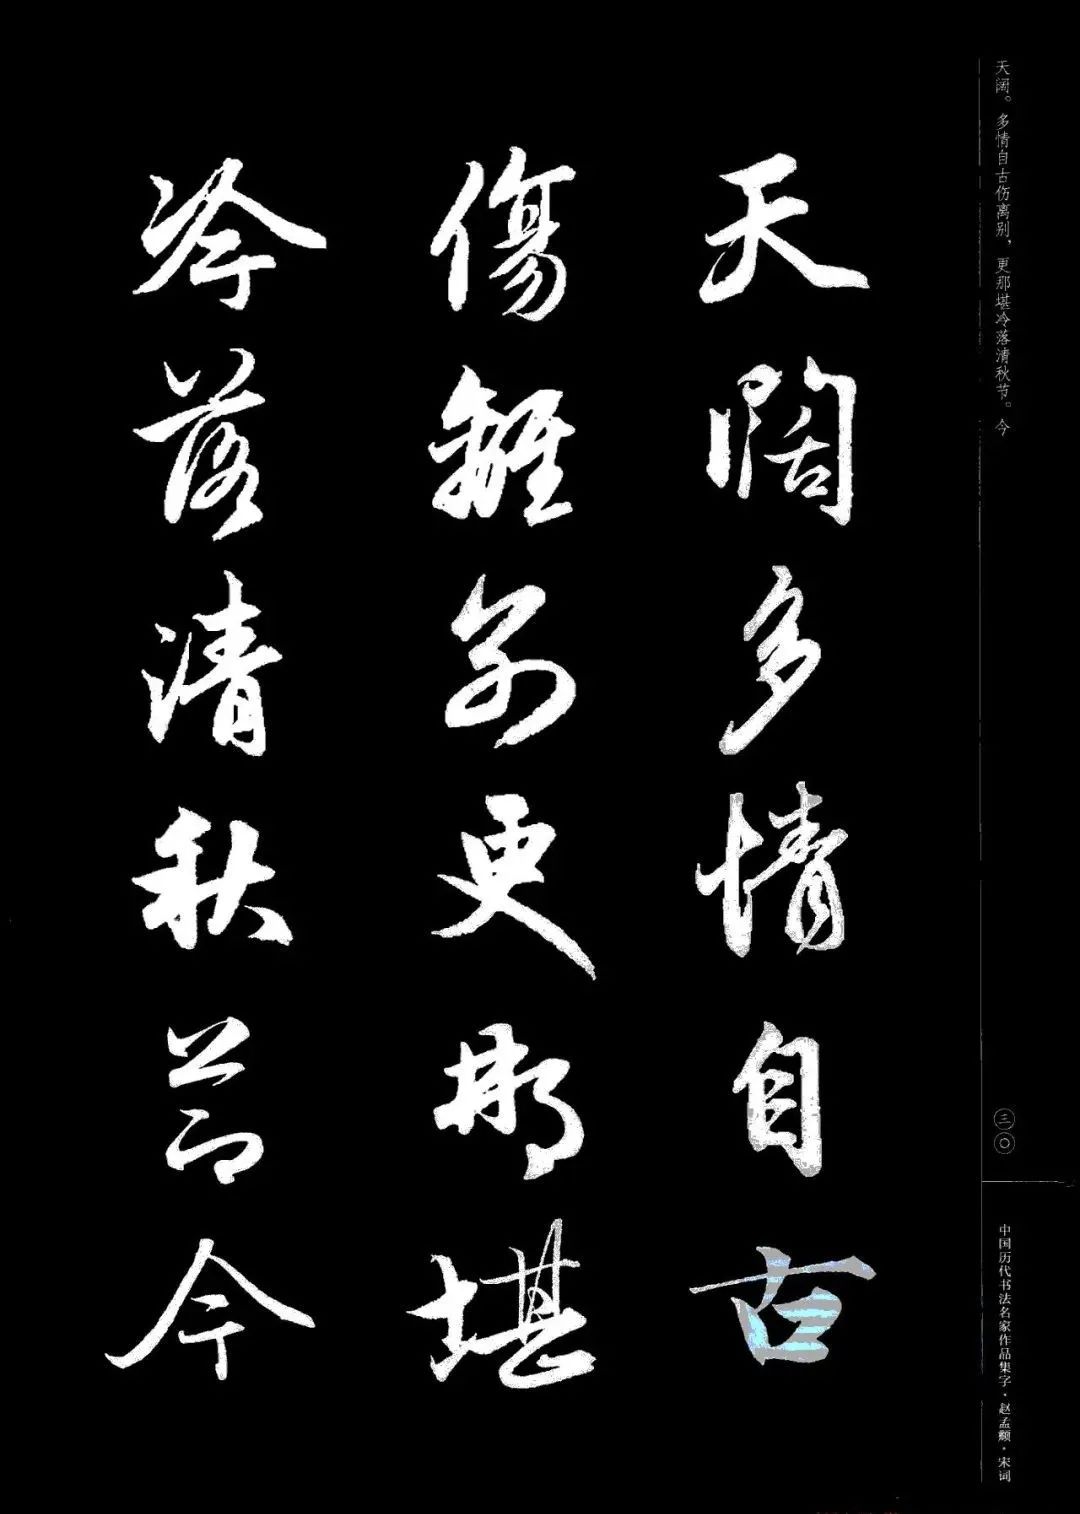 天阔。多情自古伤离别，更那堪冷落清秋节。今
天闊多情自古
傷離别更那堪
冷落清秋節今
三〇
中国历代书法名家作品集字·赵孟頫·宋词